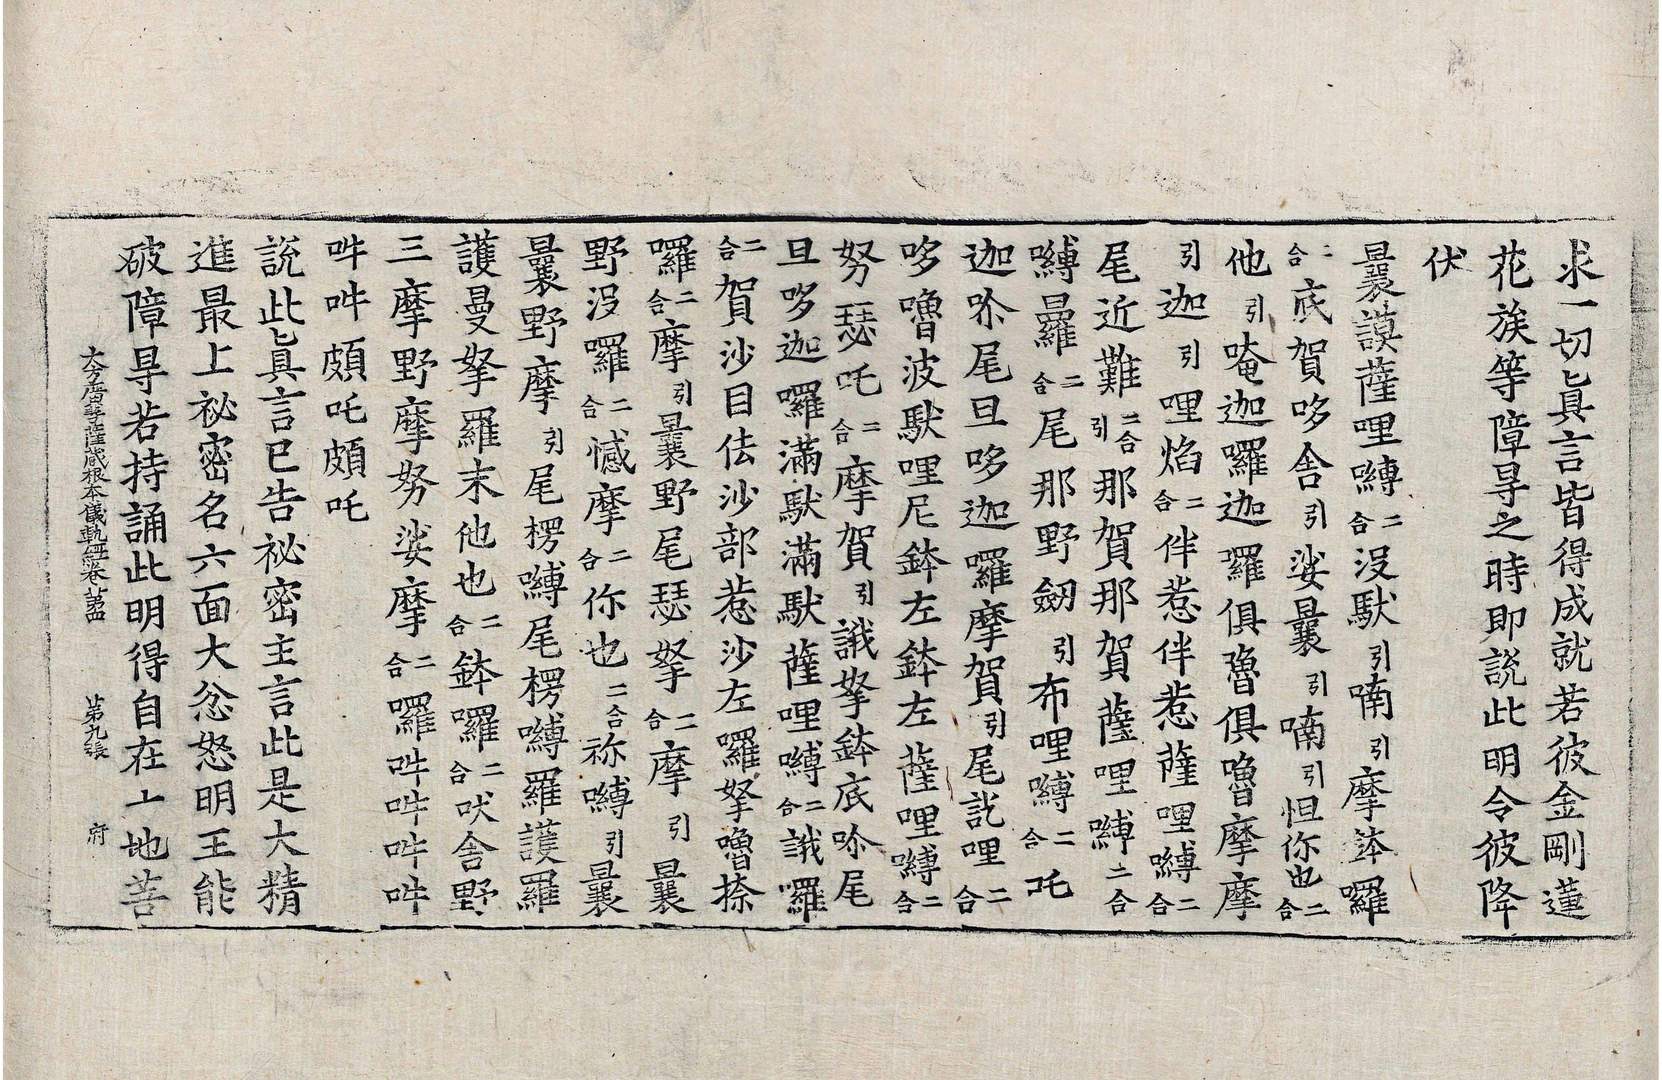 求一切眞言皆得成就若彼金剛蓮
花族等障㝵之時即說此明令彼降
伏
曩謨薩哩嚩二合沒馱引喃引摩鉢囉
二合底賀哆舍引娑曩引喃引怛你也二合
他引唵迦囉迦囉俱嚕俱嚕摩摩
引迦引哩焰二合伴惹伴惹薩哩嚩二合
尾近難二合引那賀那賀薩哩嚩二合
嚩曩二合尾那野劒引布哩嚩二合吒
迦吤尾旦哆迦囉摩賀引尾訖哩二合
哆嚕波馱哩尼鉢左鉢左薩哩嚩二合
努瑟吒二合摩賀引誐拏鉢底吤尾
旦哆迦囉滿馱滿馱薩哩嚩二合誐囉
二合賀沙目佉沙部惹沙左囉拏嚕捺
囉二合摩引曩野尾瑟拏二合摩引曩
野沒囉二合憾摩二合你也二合祢嚩引曩
曩野摩引尾楞嚩尾楞嚩羅護羅
護曼拏羅末他也二合鉢囉二合吠舍野
三摩野摩努娑摩二合囉吽吽吽吽
吽吽頗吒頗吒
說此眞言已告祕密主言此是大精
進最上祕密名六面大忿怒明王能
破障㝵若持誦此明得自在一地菩
大方廣菩薩藏根本儀軌經卷第四 第九張 府